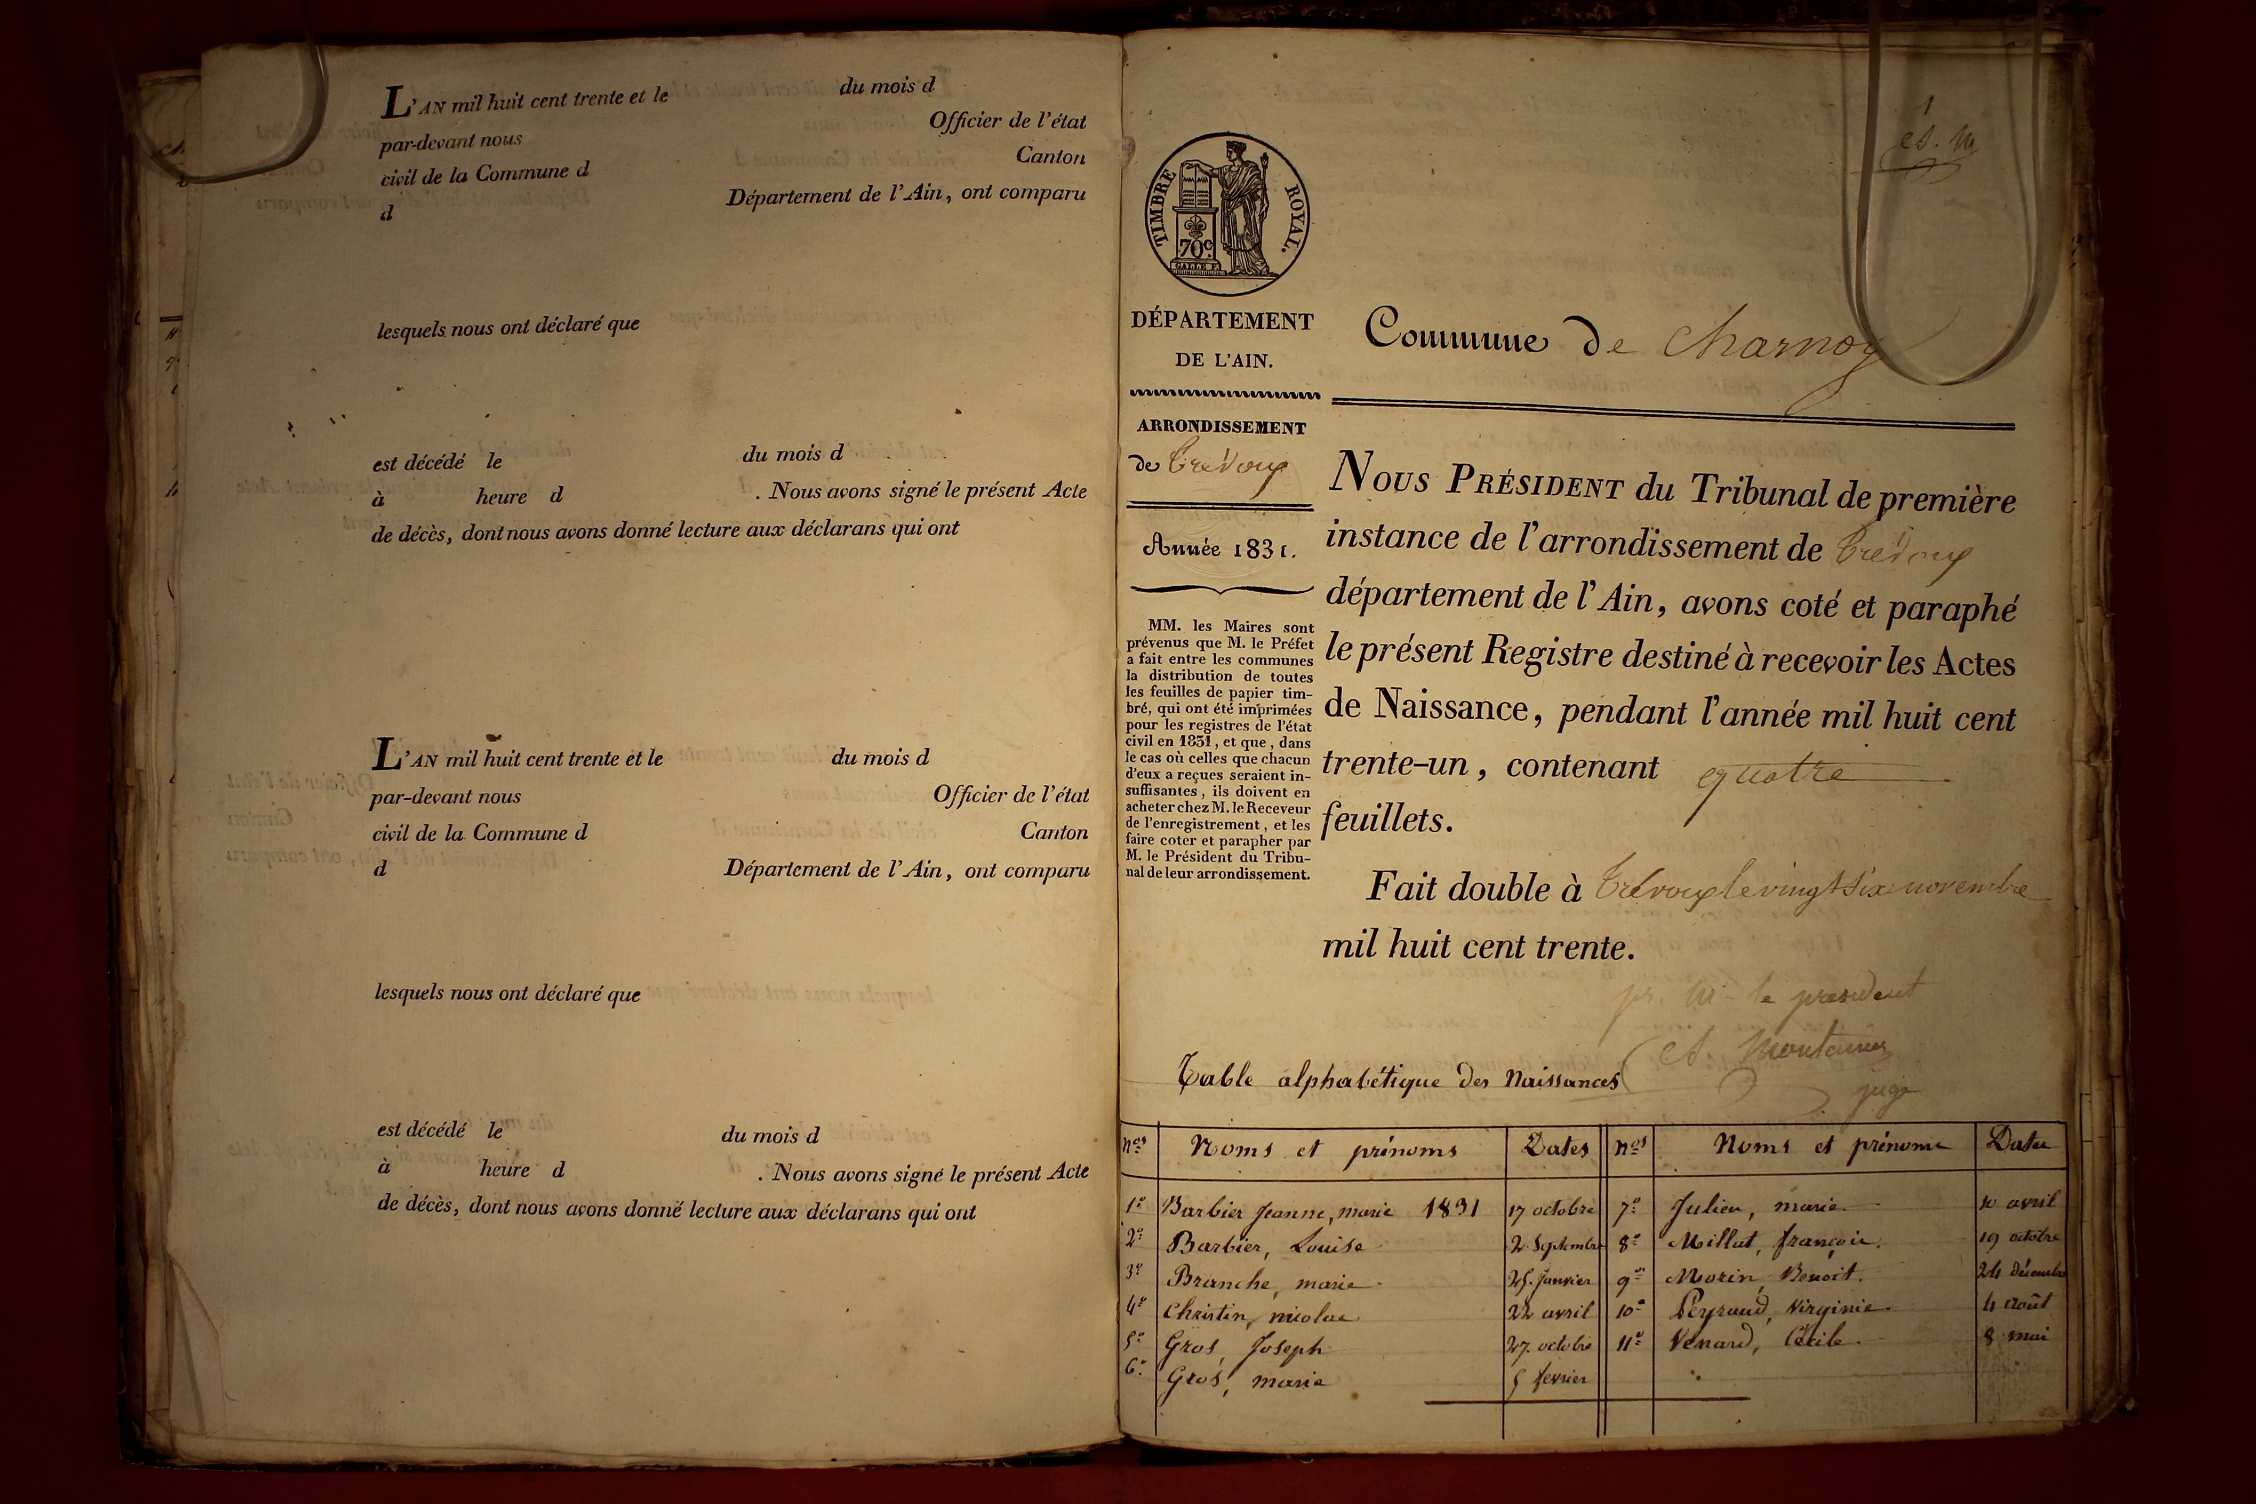 L'AN mil huit cent trente et le du mois d
par-devant nous Officier de l'état
civil de la Commune d Canton
d Département de l'Ain, ont comparu
lesquels nous ont déclaré que
est décédé le du mois d
à heure d . Nous avons signé le présent Acte
de décès, dont nous avons donné lecture aux déclarans qui ont
L'AN mil huit cent trente et le du mois d
par-devant nous Officier de l'état
civil de la Commune d Canton
d Département de l'Ain, ont comparu
lesquels nous ont déclaré que
est décédé le du mois d
à heure d . Nous avons signé le présent Acte
de décès, dont nous avons donné lecture aux déclarans qui ont
1
TIMBRE ROYAL.
70c.
DÉPARTEMENT
DE L'AIN.
ARRONDISSEMENT
de Trévoux
Année 1831.
MM. les Maires sont
prévenus que M. le Préfet
a fait entre les communes
la distribution de toutes
les feuilles de papier tim-
bré, qui ont été imprimées
pour les registres de l'état
civil en 1831, et que, dans
le cas où celles que chacun
d'eux a reçues seraient in-
suffisantes, ils doivent en
acheter chez M. le Receveur
de l'enregistrement, et les
faire coter et parapher par
M. le Président du Tribu-
nal de leur arrondissement.
Commune de Charnoy
NOUS PRÉSIDENT du Tribunal de première
instance de l'arrondissement de Trévoux
département de l'Ain, avons coté et paraphé
le présent Registre destiné à recevoir les Actes
de Naissance, pendant l'année mil huit cent
trente-un, contenant quatre
feuillets.
Fait double à Trévoux le vingt six novembre
mil huit cent trente.
pr. M. le president
juge
Table alphabétique des Naissances
nos Noms et prénoms Dates nos Noms et prénoms Dates
1o Barbier Jeanne, marie 1831 17 octobre 7o Julien, marie 10 avril
2o Barbier, Louise 2 Septembre 8o Millat, françois. 19 octobre
3o Branche, marie 25. Janvier 9o Morin, Benoit. 24 décembre
4o Christin, nicolas 22 avril 10o Peyraud, Virginie 4 août
5o Gros, Joseph 27. octobre 11o Venard, Cécile 8 mai
6o Gros, marie 5 fevrier